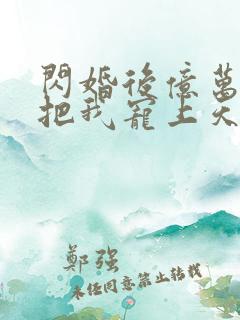 閃婚後億萬
把我寵上天
鄭强
未經同意禁止轉載